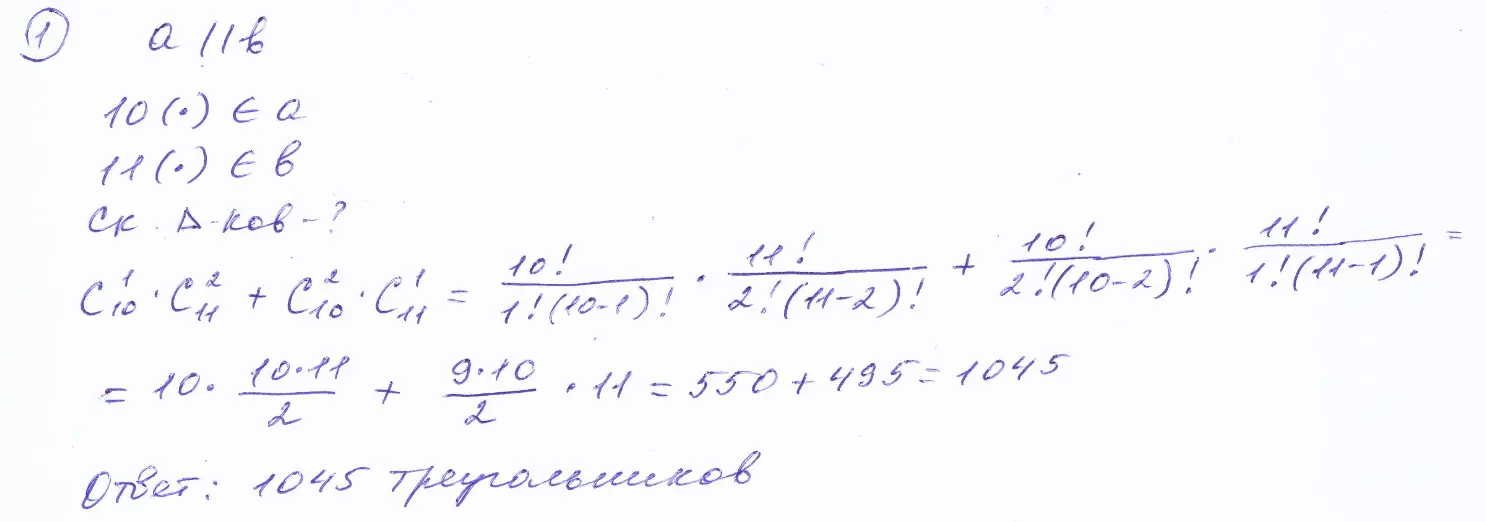 ① a || b
10 (·) ∈ a
11 (·) ∈ b
Ск. Δ-ков - ?
C₁₀¹ · C₁₁² + C₁₀² · C₁₁¹ = 10! / 1!(10-1)! · 11! / 2!(11-2)! + 10! / 2!(10-2)! · 11! / 1!(11-1)! =
= 10 · 10·11 / 2 + 9·10 / 2 · 11 = 550 + 495 = 1045
Ответ: 1045 треугольников